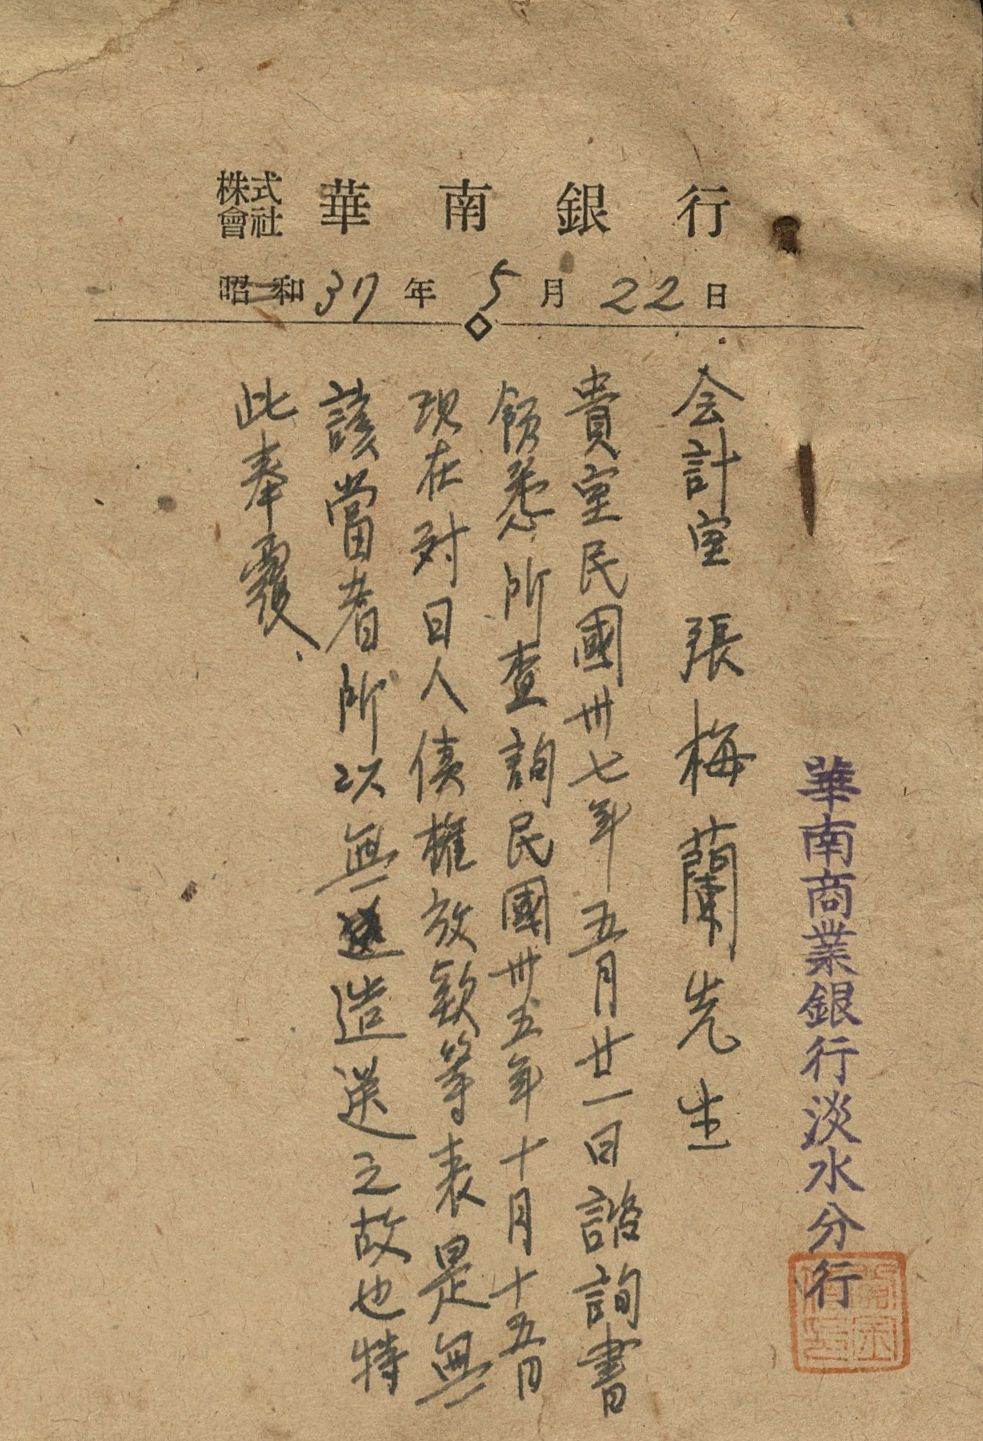 株式會社 華南銀行
昭和37年5月22日
華南商業銀行淡水分行
会計室 張梅蘭先生
貴室民國卅七年五月廿一日諮詢書
領悉所查詢民國卅五年十月十五日
現在対日人債權放款等表是無
該當者所以無造送之故也特
此奉覆、